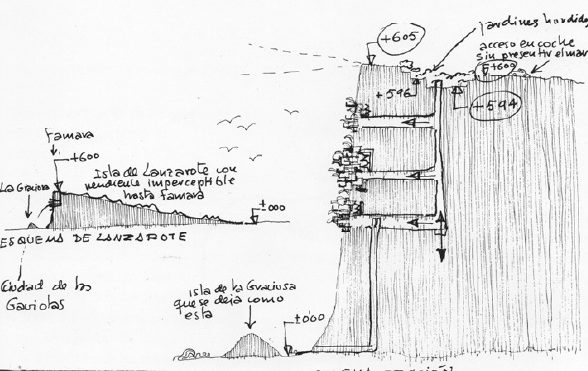 +605
Jardines hundidos
acceso en coche
sin presentir el mar
+600
+596
+594
Famara
+600
La Graciosa
Isla de Lanzarote con
pendiente imperceptible
hasta famara
±000
ESQUEMA DE LANZAROTE
Ciudad de las
Gaviotas
isla de la Graciosa
que se deja como
esta
±000